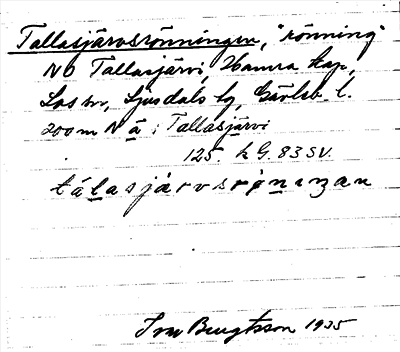 Tallasjärvsrönningen, "rönning"
NO Tallasjärvi, Hamra kap.,
Los sn, Ljusdals tg, Gävleb. l.
200 m N ä i Tallasjärvi
125. k G. 83 SV.
tálasjärvsrønıŋan
Bengtsson 1935